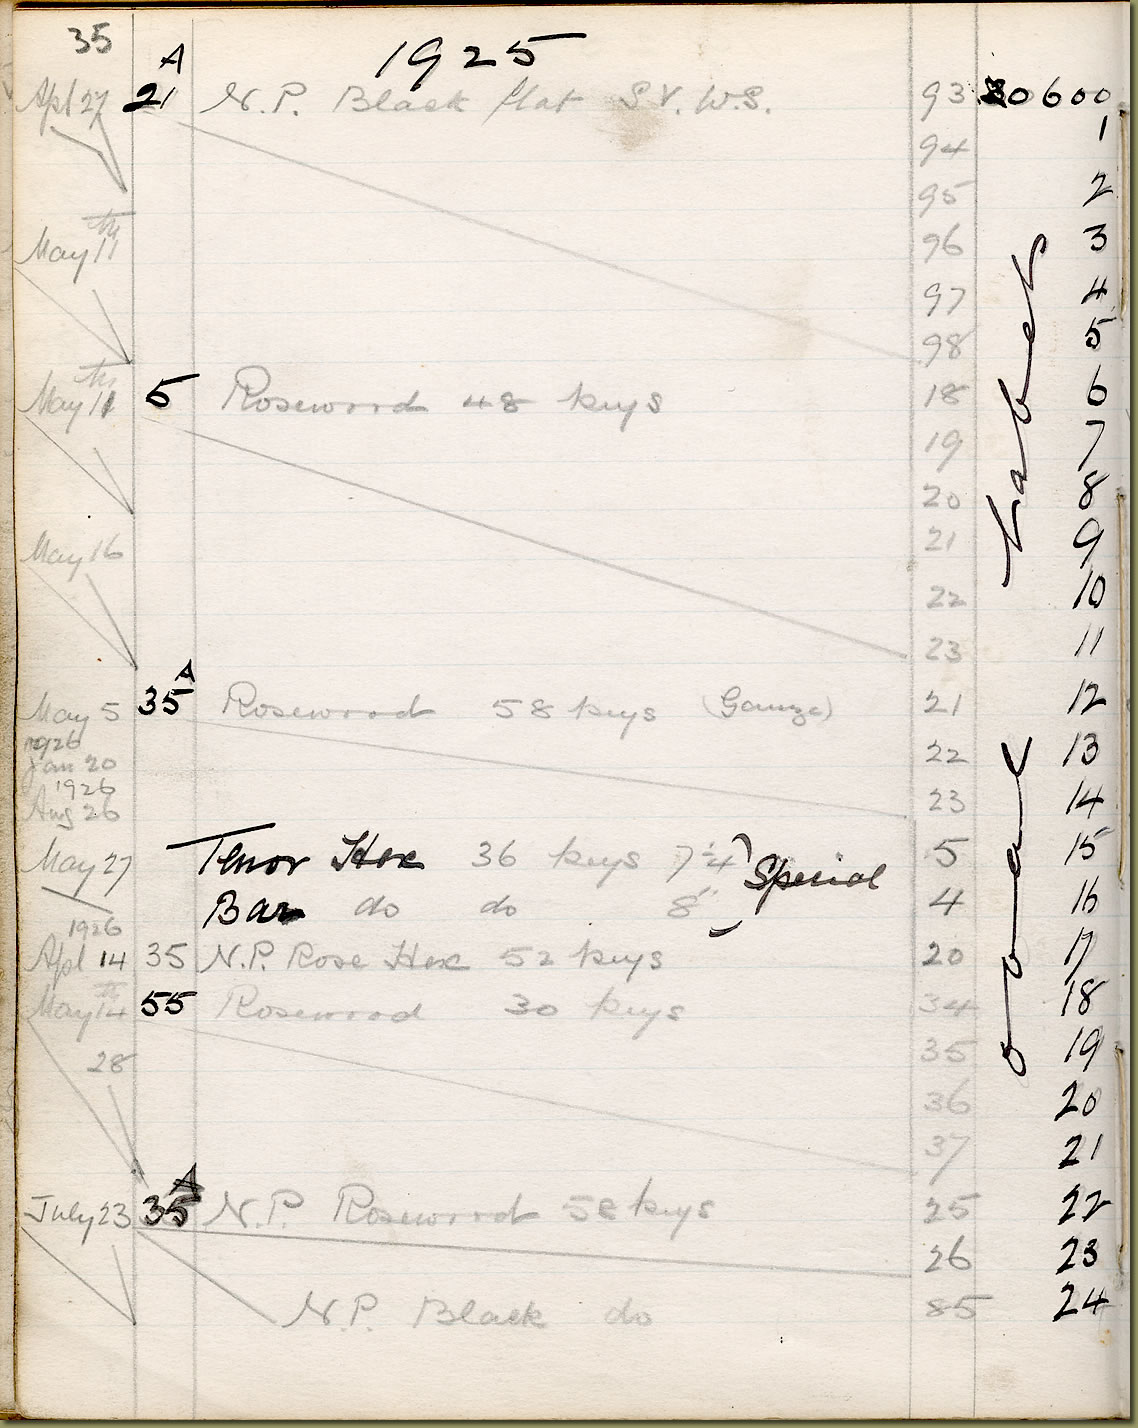 35
1925
A
Apl 27 21 N.P. Black flat S.V. W.S. 93 30600
94 1
95 2
May 11th 96 3
97 4
98 5
May 11th 5 Rosewood 48 keys 18 6
19 7
20 8
May 16 21 9
22 10
23 11
A
May 5 35 Rosewood 58 keys (Gauze) 21 12
1926
Jan 20 22 13
1926
Aug 26 23 14
May 27 Tenor Hex 36 keys 7¼ 5 15
Special
Bar do do 8" 4 16
1926
Apl 14 35 N.P. Rose Hex 52 keys 20 17
May 14th 55 Rosewood 30 keys 34 18
28 35 19
36 20
37 21
A
July 23 35 N.P. Rosewood 58 keys 25 22
26 23
N.P. Black do 85 24